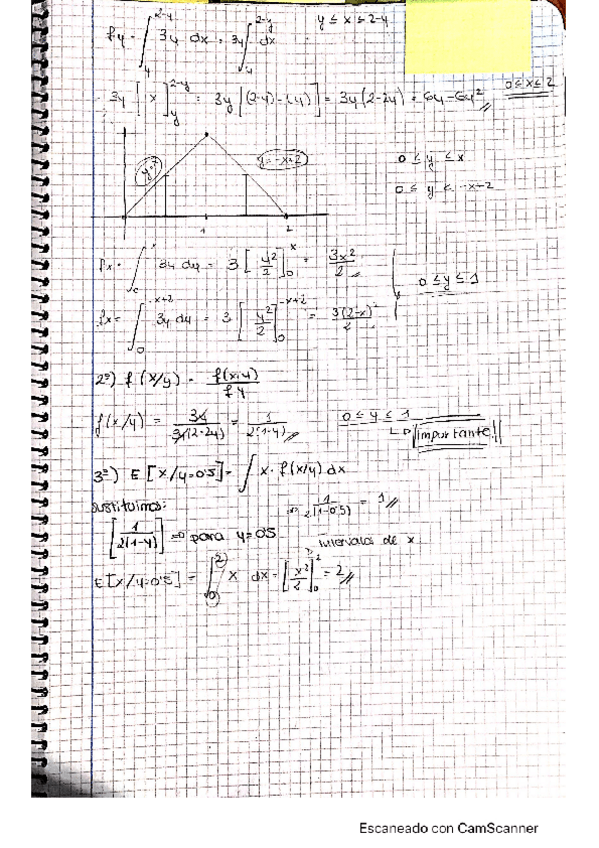 fy = ∫_y^{2-y} 3y dx = 3y ∫_y^{2-y} dx y ≤ x ≤ 2-y
3y [x]_y^{2-y} = 3y [(2-y)-(y)] = 3y(2-2y) = 6y-6y² 0≤x≤2
y=x y=-x+2 0 ≤ y ≤ x
0 ≤ y ≤ -x+2
1 2
fx = ∫ 3y dy = 3 [y²/2]_0^x = 3x²/2
0 ≤ y ≤ 1
fx = ∫_0^{-x+2} 3y dy = 3 [y²/2]_0^{-x+2} = 3(2-x)²/2
2º) f(x/y) = f(x,y)/fy
f(x/y) = 3y/3y(2-2y) = 1/2(1-y) 0 ≤ y ≤ 1
importante!
3º) E[x/y=0'5] = ∫ x · f(x/y) dx
sustituimos: 1/2(1-0'5) = 1
[1/2(1-y)] => para y=0'5 intervalos de x
E[x/y=0'5] = ∫_0^2 x dx = [x²/2]_0^2 = 2
Escaneado con CamScanner